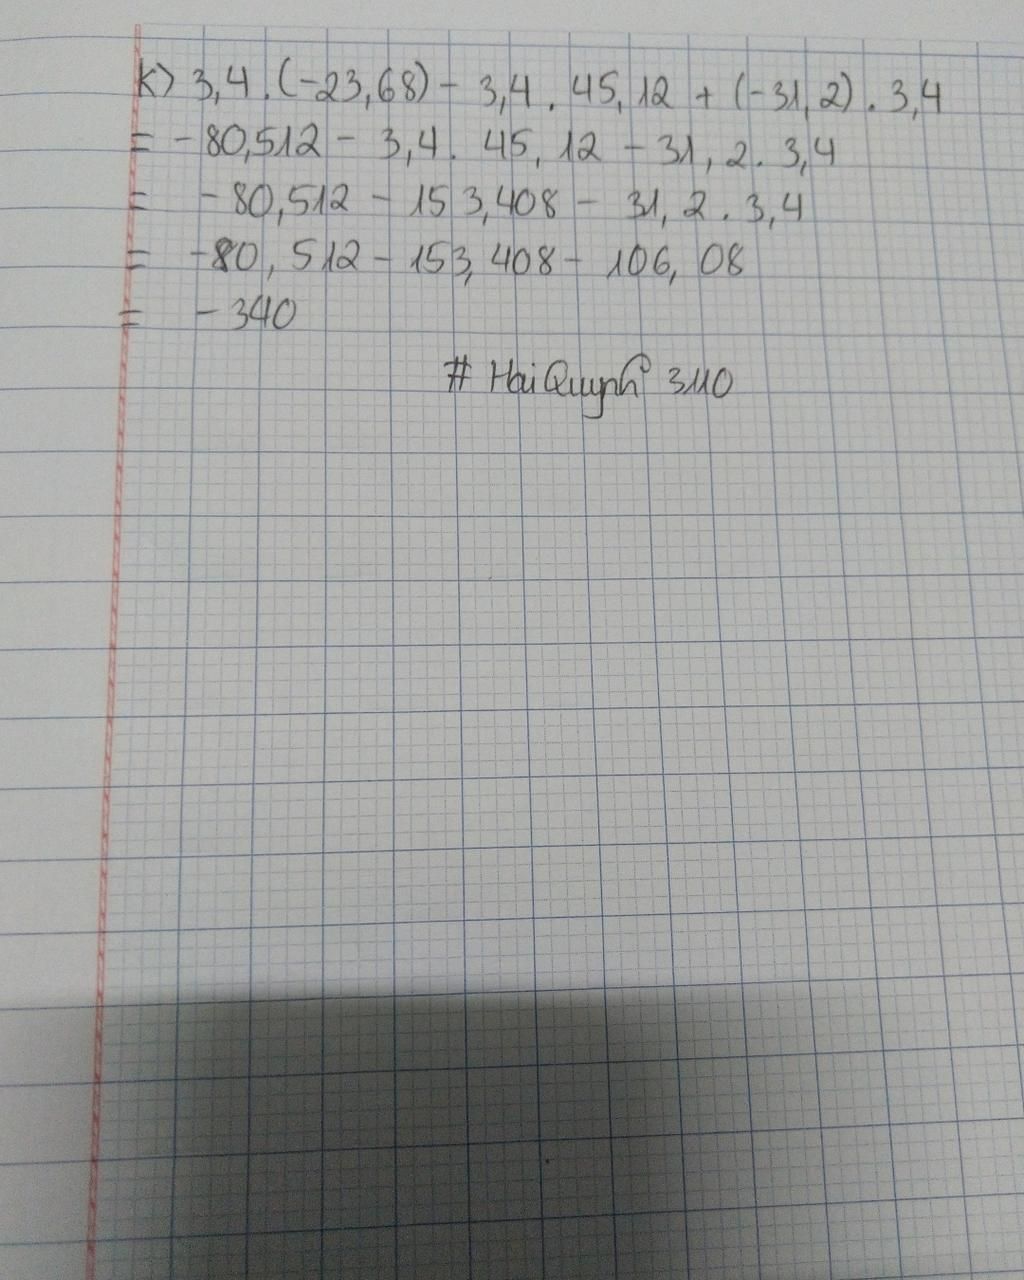 k) 3,4 . (-23,68) - 3,4 . 45,12 + (-31,2) . 3,4
= -80,512 - 3,4 . 45,12 - 31,2 . 3,4
= -80,512 - 153,408 - 31,2 . 3,4
= -80,512 - 153,408 - 106,08
= -340
# HaiQuynh 3110